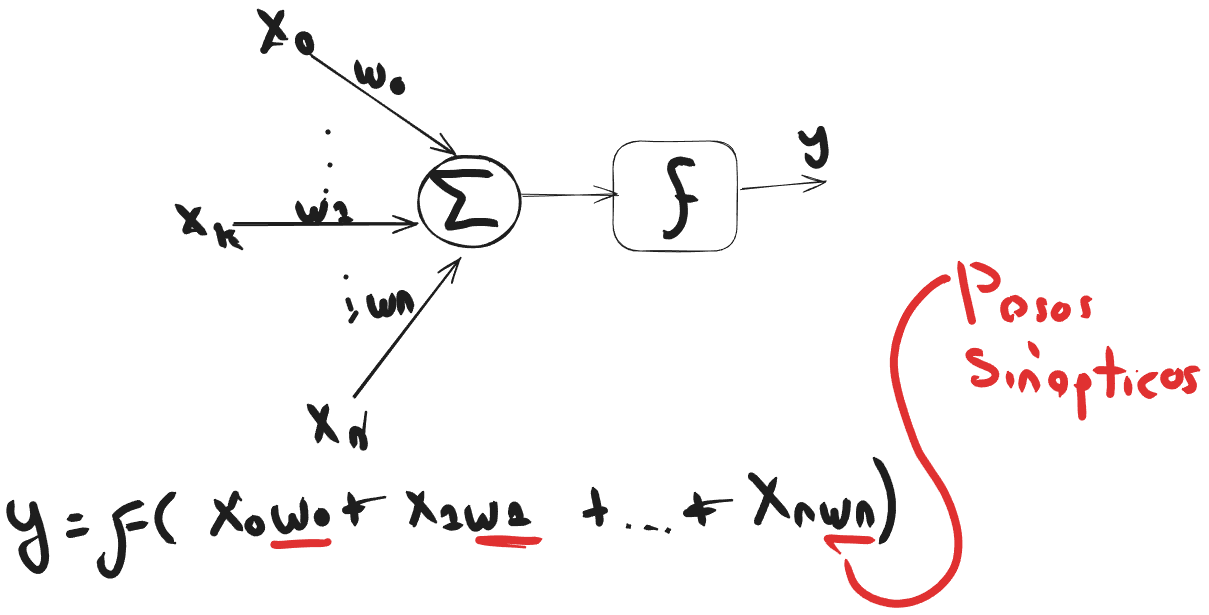 x0
w0
xk
w1
Σ
f
y
wn
xn
Posos
sinapticos
y = f( x0w0 + x1w1 + ... + xnwn)